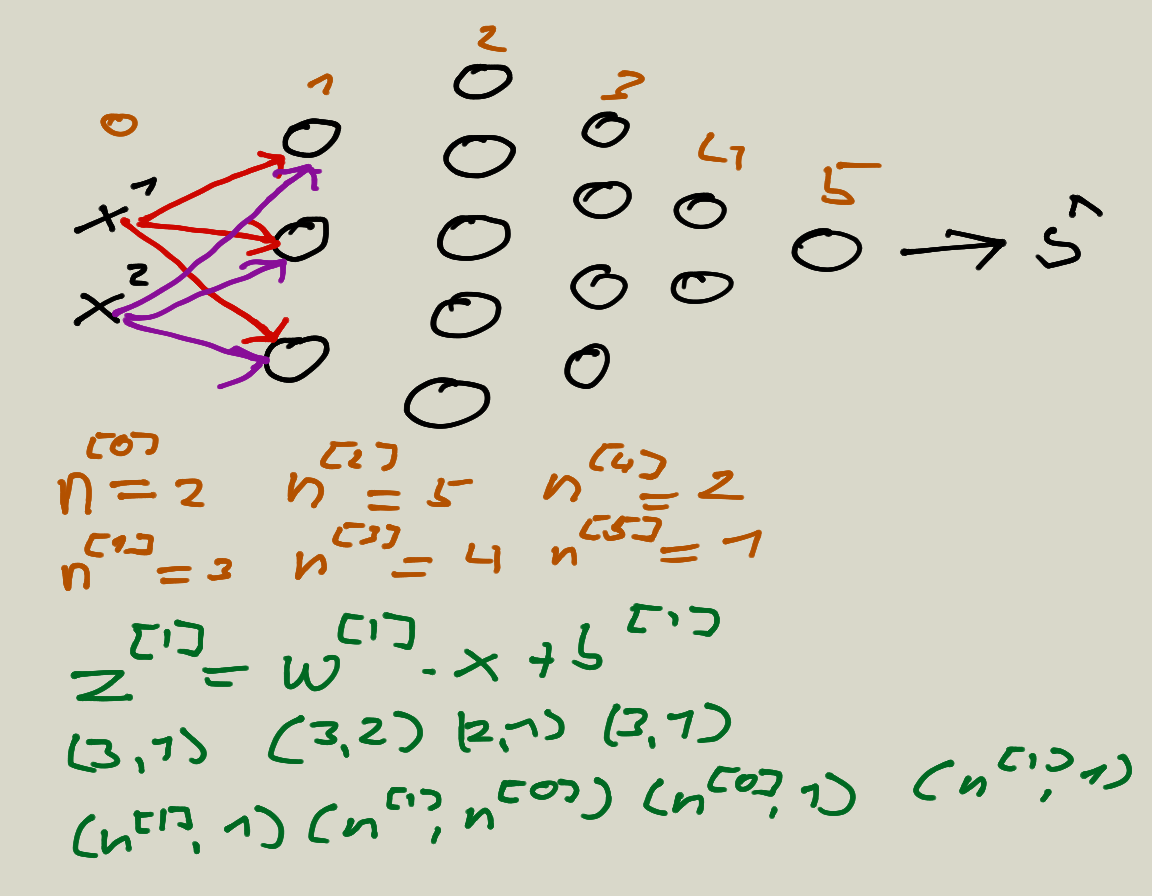 2
1
3
0
4
5
x¹
x²
n^[0] = 2 n^[2] = 5 n^[4] = 2
n^[1] = 3 n^[3] = 4 n^[5] = 1
z^[1] = w^[1] · x + b^[1]
(3,1) (3,2) (2,1) (3,1)
(n^[1], 1) (n^[1], n^[0]) (n^[0], 1) (n^[1], 1)